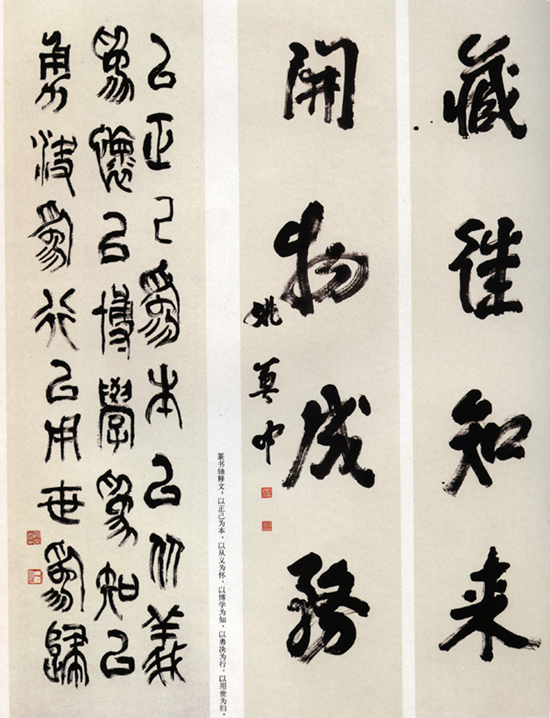 藏往知来
開物成務
姚奠中
篆书轴释文：以正己为本，以从义为怀，以博学为知，以勇决为行，以用世为归。
以正己爲本以从義
爲懷以博學爲知以
勇決爲行以用世爲歸